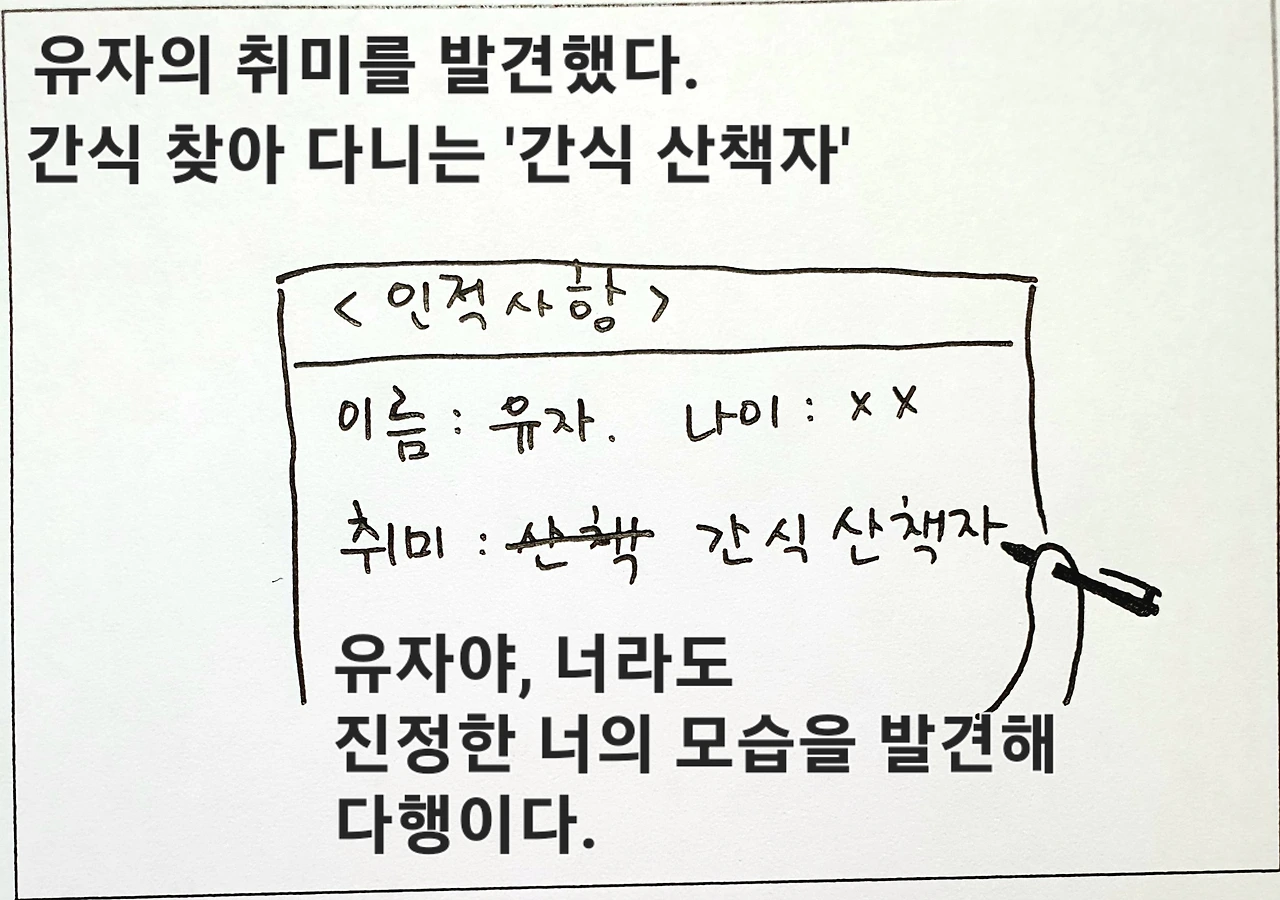 유자의 취미를 발견했다.
간식 찾아 다니는 '간식 산책자'
<인적사항>
이름 : 유자. 나이 : x x
취미 : 산책 간식 산책자
유자야, 너라도
진정한 너의 모습을 발견해
다행이다.